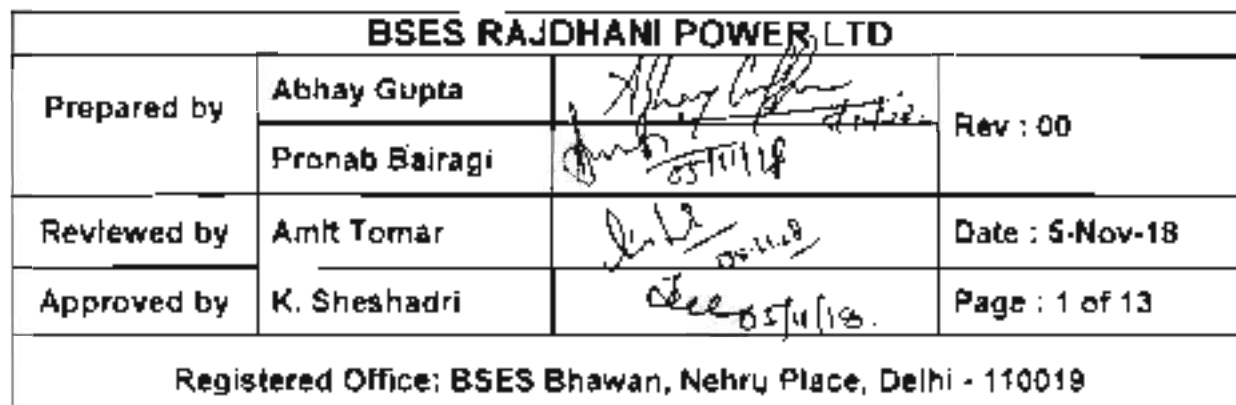 BSES RAJDHANI POWER LTD
Prepared by
Abhay Gupta
Abhay Gupta
Rev : 00
Pronab Bairagi
05/11/18
Reviewed by
Amit Tomar
05.11.18
Date : 5-Nov-18
Approved by
K. Sheshadri
05/11/18.
Page : 1 of 13
Registered Office: BSES Bhawan, Nehru Place, Delhi - 110019